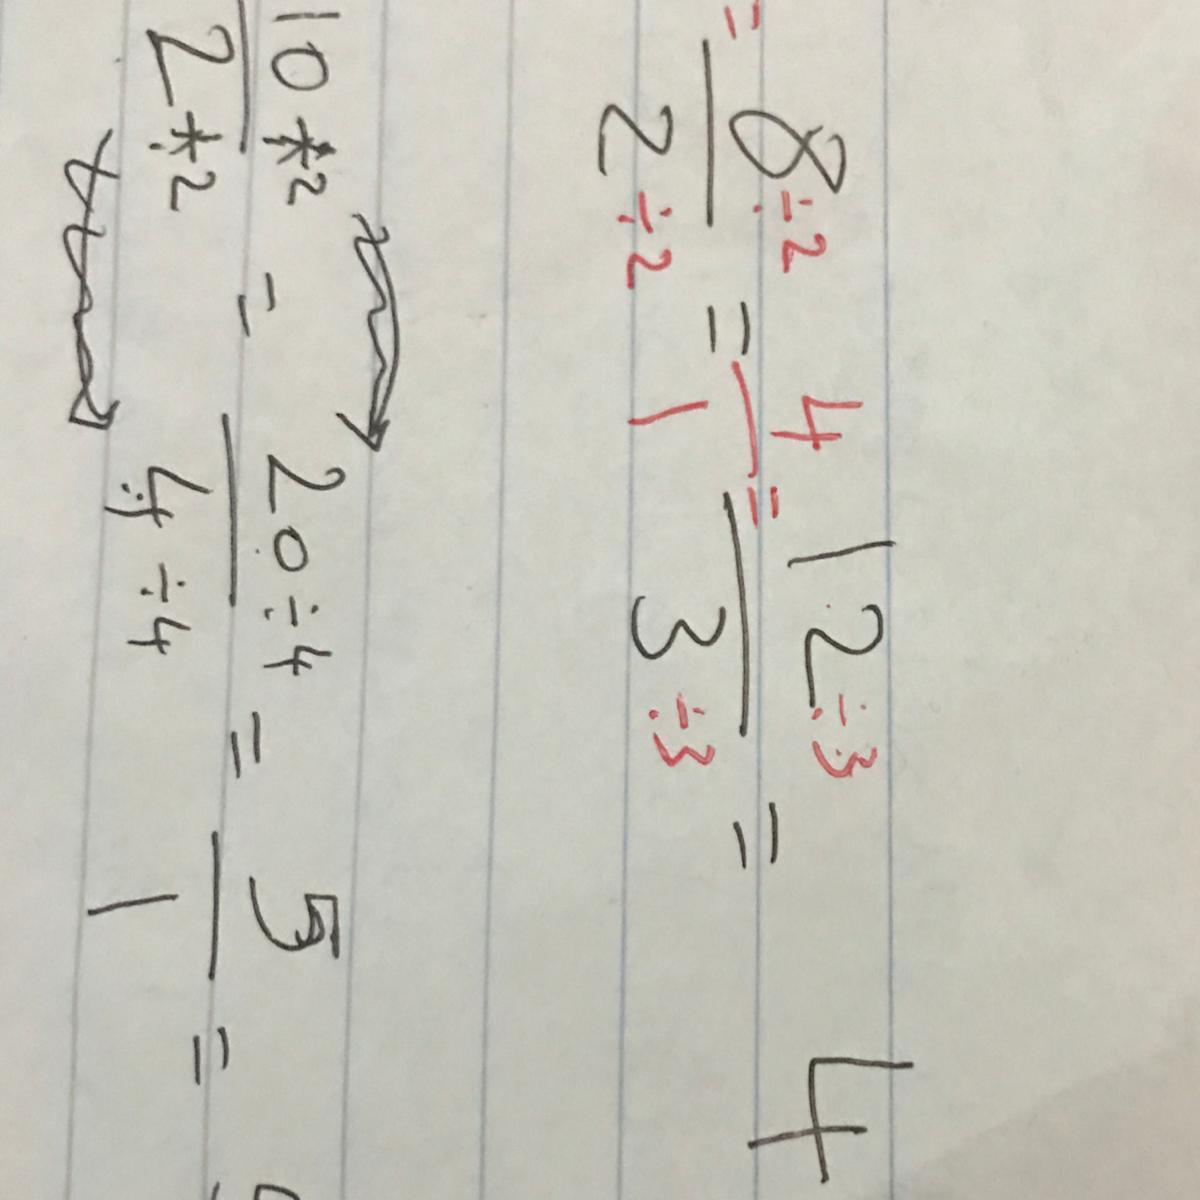 = 8÷2/2÷2 = 4/1 = 12÷3/3÷3 = 4
10*2/2*2 = 20÷4/4÷4 = 5/1 =